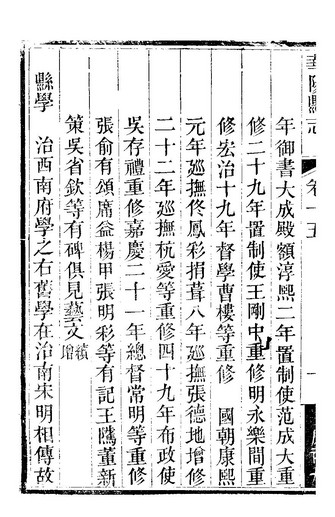 華陽縣志
卷十五
年御書大成殿額淳熙二年置制使范成大重
修二十九年置制使王剛中重修明永樂間重
修宏治十九年督學曹樓等重修　國朝康熙
元年巡撫佟鳳彩捐葺八年巡撫張德地增修
二十二年巡撫杭愛等重修四十九年布政使
吳存禮重修嘉慶二十一年總督常明等重修
張俞有頌席益楊甲張明彩等有記王隲董新
策吳省欽等有碑俱見藝文續增
縣學　治西南府學之右舊學在治南宋明相傳故